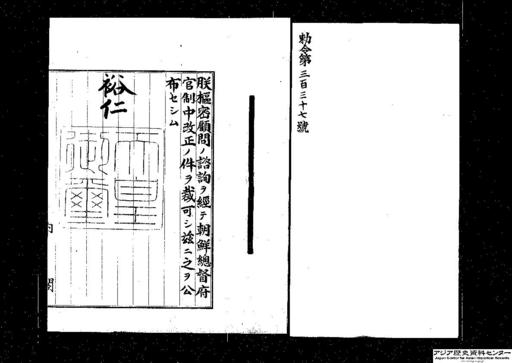 勅令第三百三十七號
朕樞密顧問ノ諮詢ヲ經テ朝鮮總督府
官制中改正ノ件ヲ裁可シ茲ニ之ヲ公
布セシム
裕仁
天皇
御璽
内閣
アジア歴史資料センター
Japan Center for Asian Historical Records